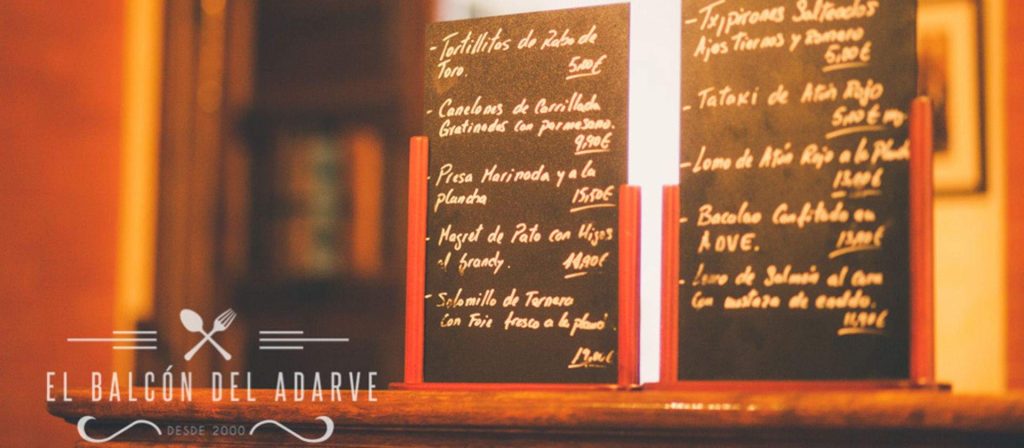 - Tortillitas de Rabo de
Toro.
5,00€
- Canelones de Carrillada
Gratinados con parmesano.
9,90€
- Presa Marinada y a la
plancha
15,50€
- Magret de Pato con Higos
al brandy.
14,90€
- Solomillo de Ternera
con Foie fresco a la
- Txipirones Salteados
Ajos Tiernos y Romero
5,00€
- Tataki de Atún Rojo
5,00€
- Lomo de Atún Rojo a la Plancha
- Bacalao Confitado en
AOVE.
13,90€
- Lomo de Salmón al
con mostaza de
11,90€
EL BALCÓN DEL ADARVE
DESDE 2000